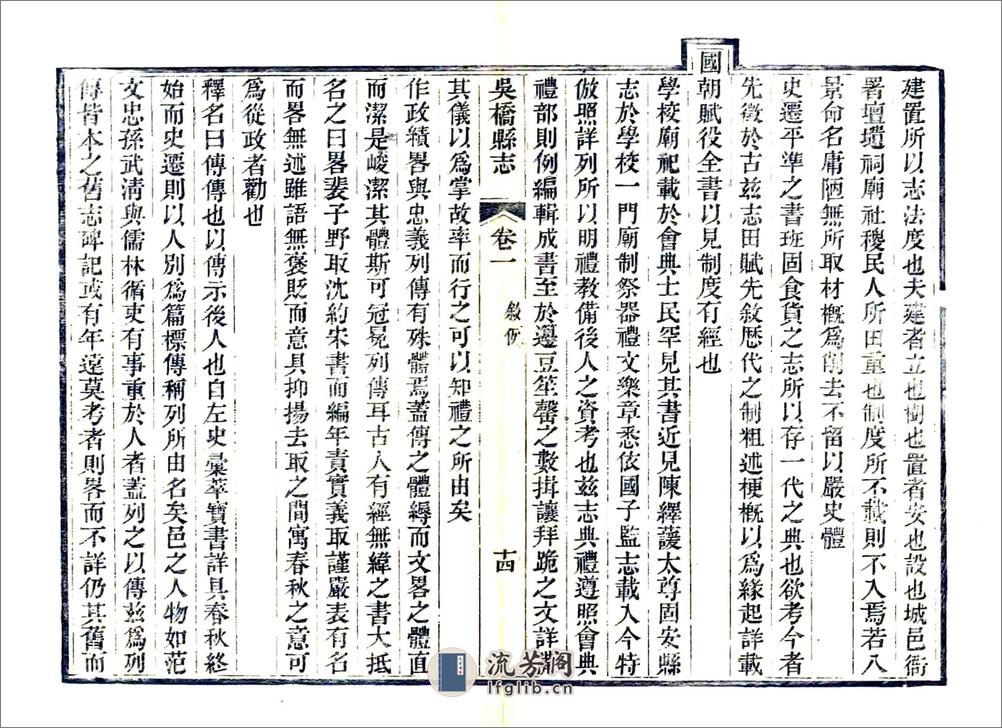 建置所以志法度也夫建者立也樹也置者安也設也城邑衙
署壇壝祠廟社稷民人所田重也制度所不載則不入焉若八
景命名庸陋無所取材概為削去不留以嚴史體
史遷平準之書班固食貨之志所以存一代之典也欲考今者
先徵於古茲志田賦先敘歷代之制粗述梗概以為緣起詳載
國朝賦役全書以見制度有經也
學校廟祀載於會典士民罕見其書近見陳繹護太尊固安縣
志於學校一門廟制祭器禮文樂章悉依國子監志載入今特
倣照詳列所以明禮教備後人之資考也茲志典禮遵照會典
禮部則例編輯成書至於籩豆笙罄之數揖讓拜跪之文詳
吳橋縣志
卷一
敘例
十四
其儀以為掌故率而行之可以知禮之所由矣
作政績畧與忠義列傳有殊體焉蓋傳之體縟而文畧之體直
而潔是峻潔其體斯可冠冕列傳耳古人有經無緯之書大抵
名之曰畧裴子野取沈約宋書而編年責實義取謹嚴表有名
而畧無述雖語無褒貶而意具抑揚去取之間寓春秋之意可
為從政者勸也
釋名曰傳傳也以傳示後人也自左史彙萃寶書詳具春秋終
始而史遷則以人別為篇標傳稱列所由名矣邑之人物如范
文忠孫武清與儒林循吏有事重於人者蓋列之以傳茲為列
傳皆本之舊志碑記或有年遠莫考者則畧而不詳仍其舊而
流芳閣
lfglib.cn